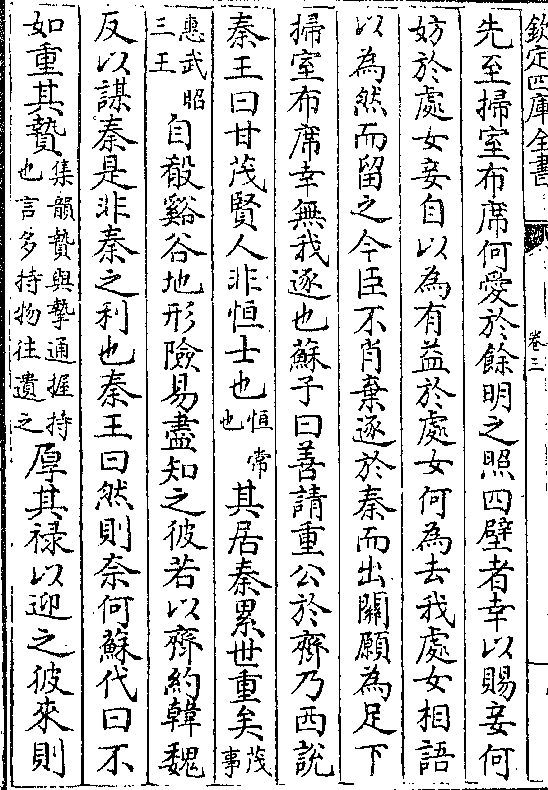 欽定四庫全書 卷三
先至掃室布席何愛於餘明之照四壁者幸以賜妾何
妨於處女妾自以為有益於處女何為去我處女相語
以為然而留之今臣不肖棄逐於秦而出關願為足下
掃室布席幸無我逐也蘇子曰善請重公於齊乃西說
秦王曰甘茂賢人非恒士也恒常也其居秦累世重矣茂事
惠武昭三王自殽谿谷地形險易盡知之彼若以齊約韓魏
反以謀秦是非秦之利也秦王曰然則奈何蘇代曰不
如重其贄集韻贄與摯通握持也言多持物往遺之厚其禄以迎之彼來則